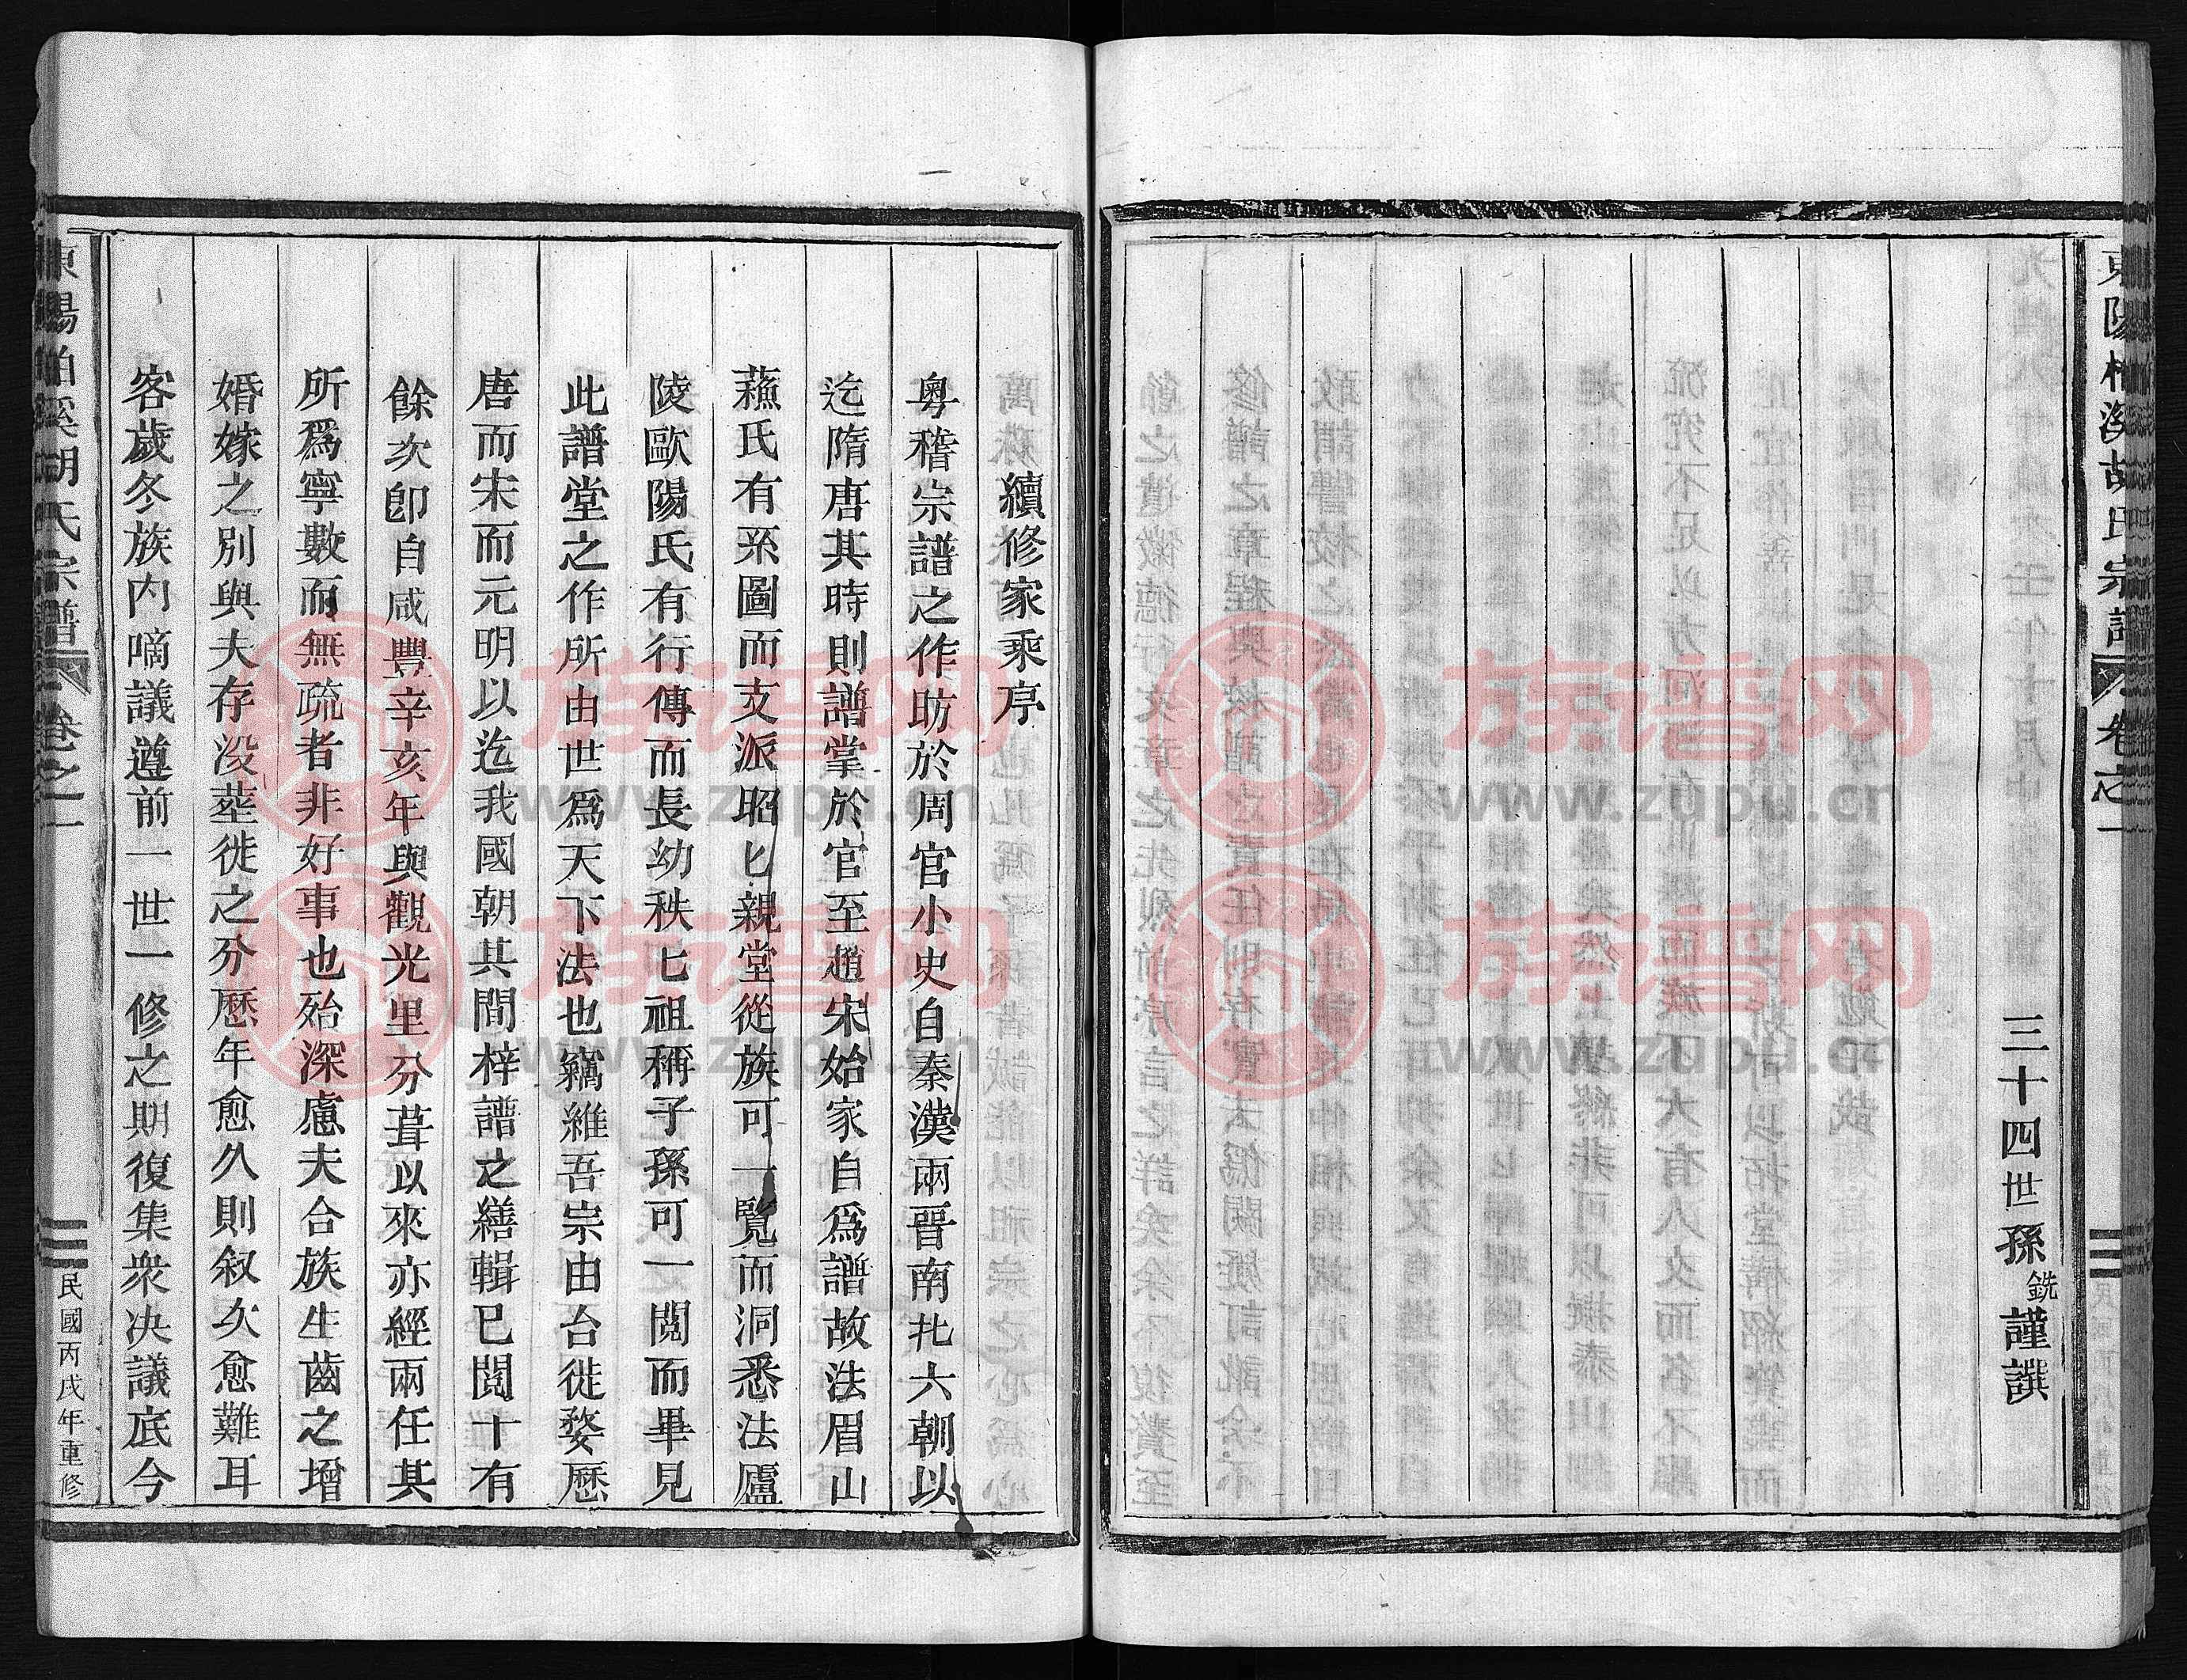 東陽柏溪胡氏宗譜
卷之一
三十四世孫銑謹譔
續修家乘序
粵稽宗譜之作昉於周官小史自秦漢兩晋南北六朝以
迄隋唐其時則譜掌於官至趙宋始家自爲譜故法眉山
蘓氏有系圖而支派昭匕親堂從族可一覧而洞悉法廬
陵歐陽氏有行傳而長幼秩匕祖稱子孫可一閲而畢見
此譜堂之作所由世爲天下法也竊維吾宗由台徙婺歷
唐而宋而元明以迄我國朝其間梓譜之繕輯已閲十有
餘次卽自咸豐辛亥年與觀光里分葺以來亦經兩任其
所爲寧數而無疏者非好事也殆深慮夫合族生齒之增
婚嫁之別與夫存没塟徙之分歷年愈久則叙次愈難耳
客歲冬族内嘀議遵前一世一修之期復集衆决議底今
東陽柏溪胡氏宗譜
卷之一
民國丙戌年重修
族谱网
www.zupu.cn
族谱网
www.zupu.cn
族谱网
www.zupu.cn
族谱网
www.zupu.cn